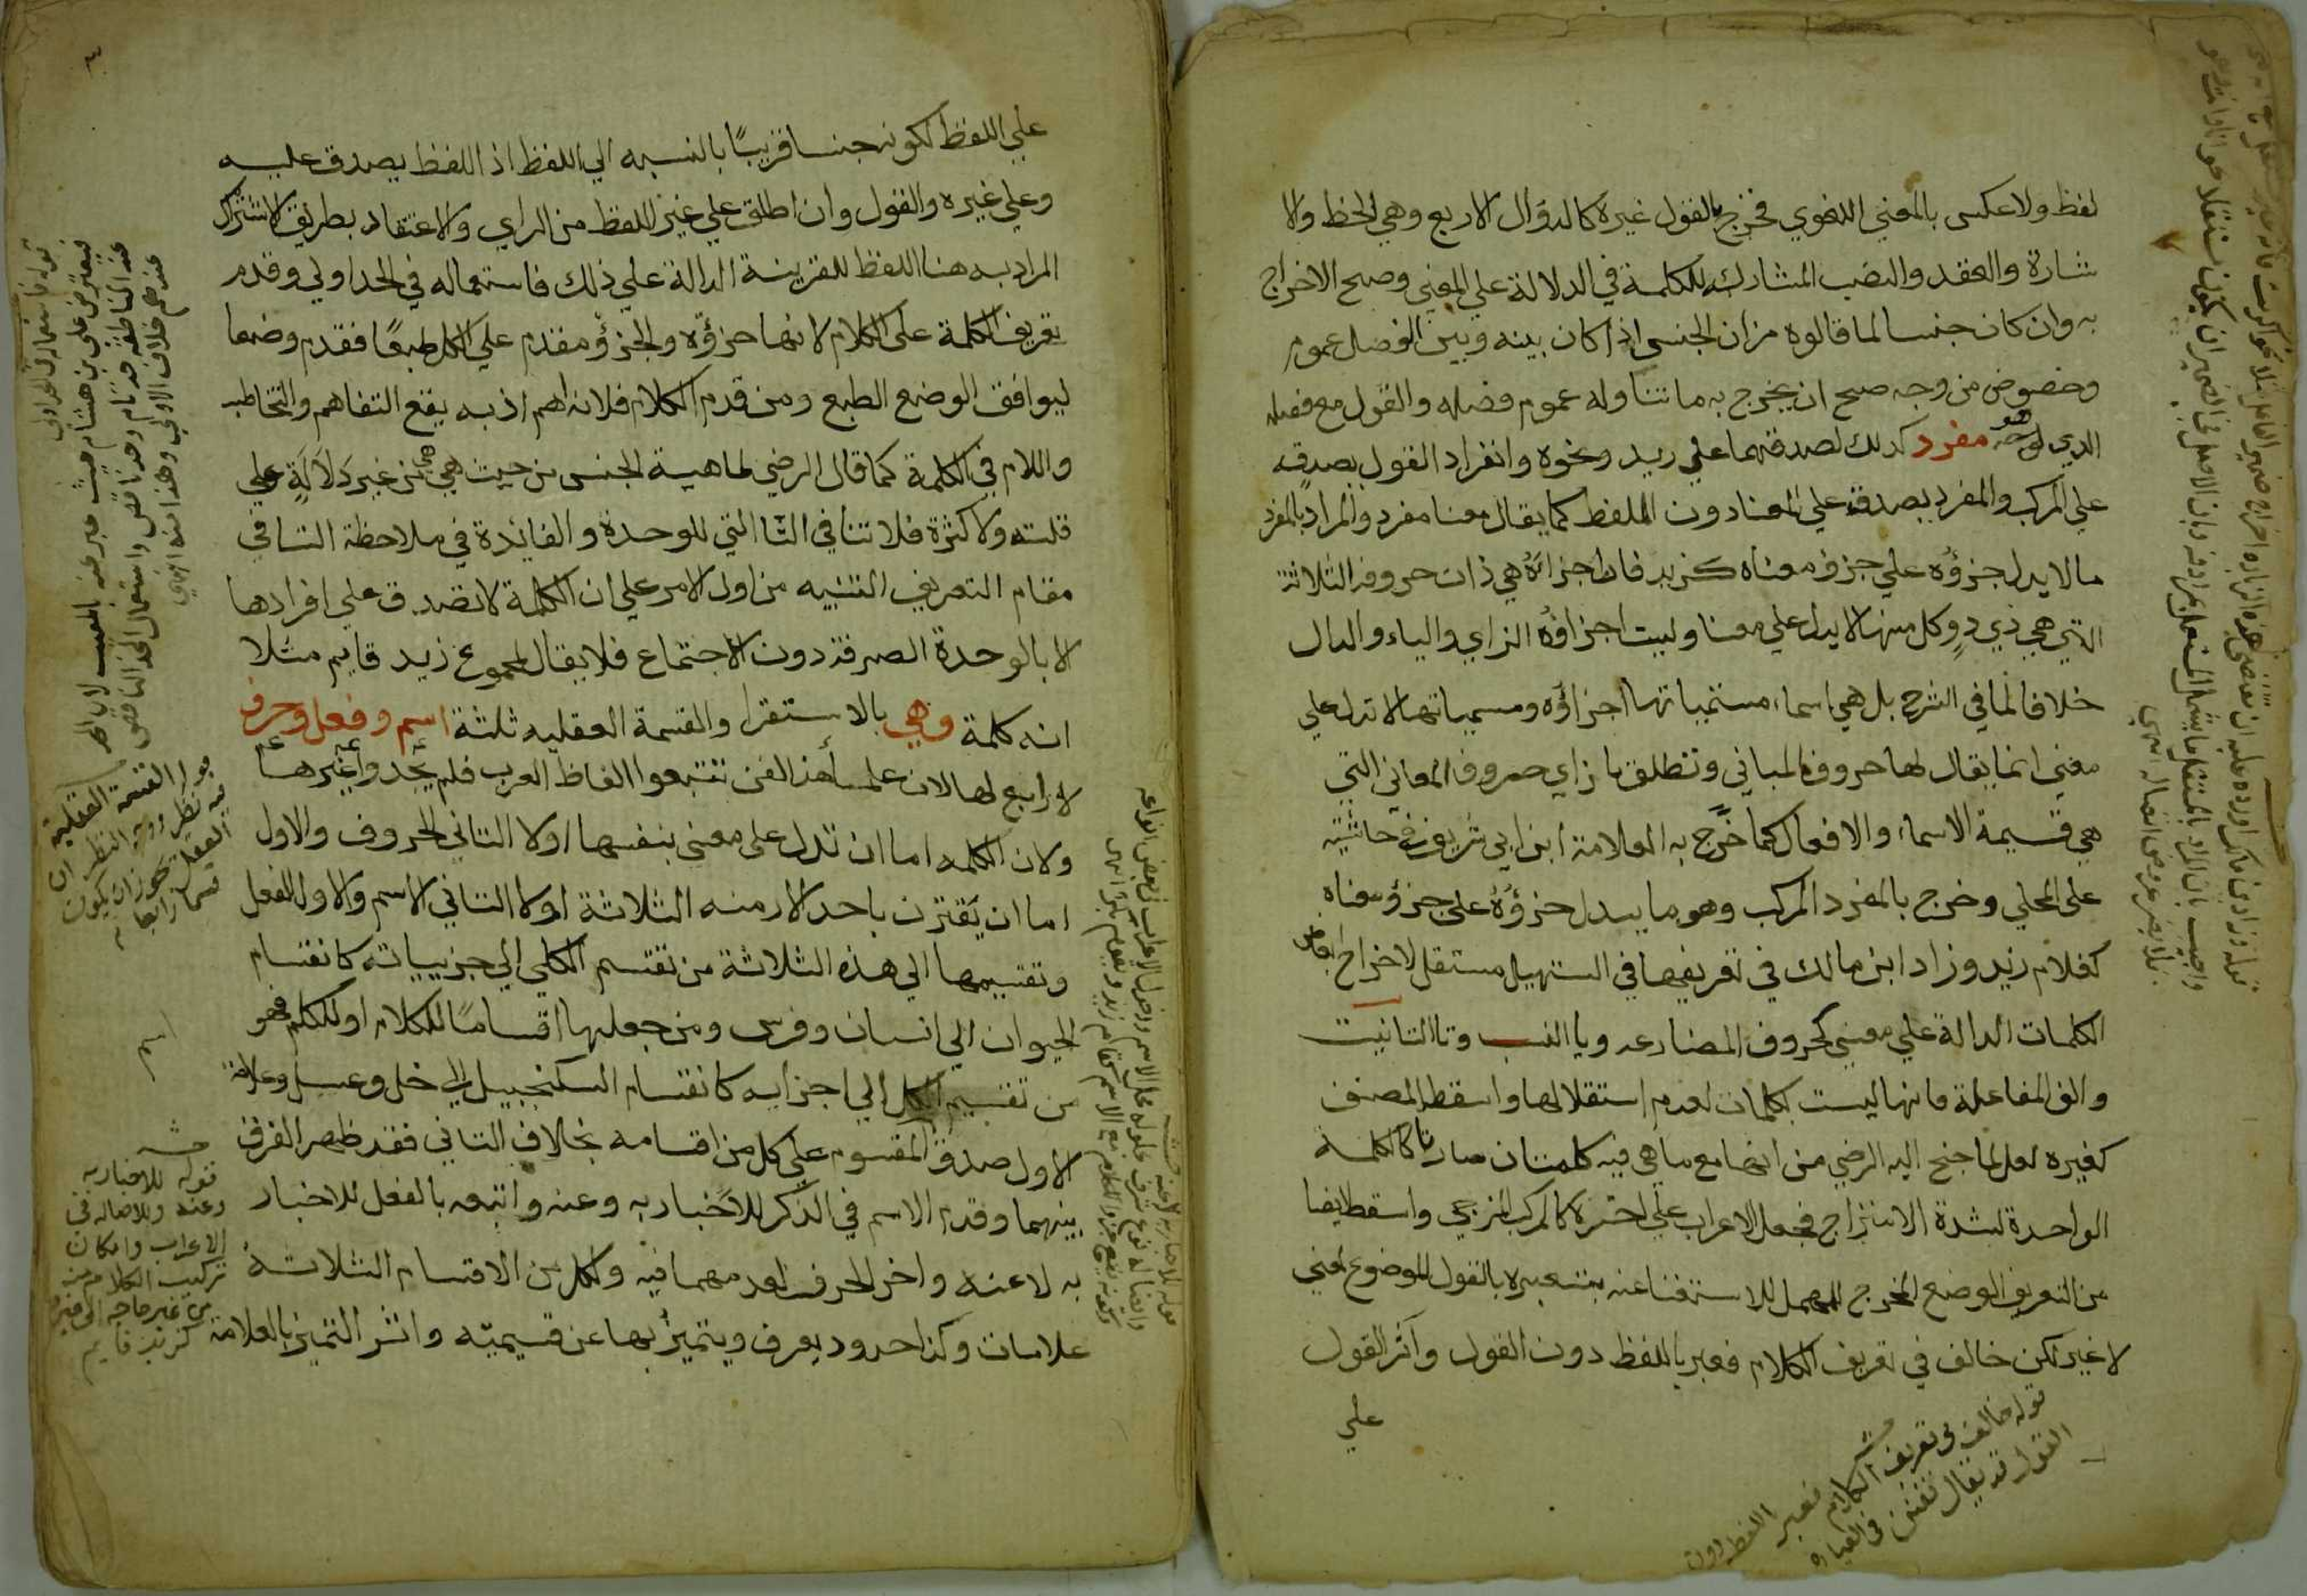 لفظ ولا عكس بالمعني اللغوي فخرج بالقول غيره كالدوال الاربع وهي الخط والا
شارة والعقد والنصب المشارك للكلمة في الدلالة علي المعني وصح الاخراج
به وان كان جنسا لما قالوه من ان الجنس اذا كان بينه وبين الفصل عموم
وخصوص من وجه صح ان يخرج به ما تناوله عموم فصله والقول مع فصله
الذي هو مفرد كذلك لصدقهما علي زيد ونحوه وانفراد القول بصدقه
علي المركب والمفرد بصدقه علي المعنا دون اللفظ كما يقال معنا مفرد والمراد بالمفرد
ما لا يدل جزؤه علي جزؤ معناه كزيد فان اجزاؤه هي ذات حروفه الثلاثة
التي هي زي د وكل منها لا يدل علي معنا وليست اجزاؤه الزاي والياء والدال
خلافا لما في الشرح بل هي اسماء مسمياتها اجزاؤه ومسمياتها لا تدل علي
معني انما يقال لها حروف المباني وتطلق بازاي حروف المعاني التي
هي قسيمة الاسماء والافعال كما خرج به العلامة ابن ابي شريف في حاشيته
علي المحلي وخرج بالمفرد المركب وهو ما يدل جزؤه علي جزؤ معناه
كغلام زيد وزاد ابن مالك في تعريفها في التسهيل مستقل لاخراج ابعاض
الكلمات الدالة علي معني كحروف المضارعه ويا النسب وتا التانيث
والف المفاعلة فانها ليست بكلمات لعدم استقلالها واسقط المصنف
كغيره لعل لما جنح اليه الرضي من انها مع ما هي فيه كلمتان صارتا كالكلمة
الواحدة لشدة الامتزاج فجعل الاعراب علي اخره كالمركب المزجي واسقط ايضا
من التعريف الوضع المخرج للمهمل للاستغنا عنه بتعبيره بالقول الموضوع لمعني
لا غير لكن خالف في تعريف الكلام فعبر باللفظ دون القول وآثر القول
علي
قوله خالف في تعريف الكلام فعبر اللفظ دون
القول قد يقال تفنن في العبارة
علي اللفظ لكونه جنسا قريبًا بالنسبه الي اللفظ اذ اللفظ يصدق عليه
وعلي غيره والقول وان اطلق علي غير اللفظ من الراي والاعتقاد بطريق الاشتراك
المراد به هنا اللفظ للقرينة الدالة علي ذلك فاستعماله في الحد اولي وقدم
تعريف الكلمة على الكلام لانها جزؤه والجزؤ مقدم علي الكل طبعًا فقدم وضعا
ليوافق الوضع الطبع ومن قدم الكلام فلانه اهم اذ به يقع التفاهم والتخاطب
واللام في الكلمة كما قال الرضي لماهية الجنس من حيث هي هي من غير دلالة علي
قلته ولا كثرة فلا تنافي التا التي للوحدة والفايدة في ملاحظة التا في
مقام التعريف التنبيه من اول الامر علي ان الكلمة لا تصدق علي افرادها
الا بالوحدة الصرفة دون الاجتماع فلا يقال لمجموع زيد قايم مثلا
انه كلمة وهي بالاستقرا والقسمة العقليه ثلثة اسم وفعل وحرف
لا رابع لها لان علماء هذا الفن تتبعوا الفاظ العرب فلم يجدوا غيرها
ولان الكلمه اما ان تدل على معنى بنفسها اولا الثاني الحروف والاول
اما ان يقترن باحد الازمنه الثلاثة اولا الثاني الاسم والاول الفعل
وتقسيمها الي هذه الثلاثة من تقسيم الكلي الي جزيياته كانقسام
الحيوان الي انسان وفرس ومن جعلها اقسامًا للكلام او للكلم فهو
من تقسيم الكل الي اجزايه كانقسام السكنجبيل الي خل وعسل وعلامة
الاول صدق المقسوم علي كل من اقسامه بخلاف الثاني فقد ظهر الفرق
بينهما وقدم الاسم في الذكر للاخبار به وعنه واتبعه بالفعل للاخبار
به لا عنه واخر الحرف لعدمهما فيه ولكل من الاقسام الثلاثة
علامات وكذا حدود يعرف ويتميز بها عن قسيميه واثر التميز بالعلامة
قوله القسمة العقلية
فيه نظر ووجه النظر ان
العقل يجوز ان يكون
قسما رابعا
قوله للاخبار به
وعنه وللاصاله في
الاعراب وامكان
تركيب الكلام منه
من غير حاجه الي غيره
كزيد قايم